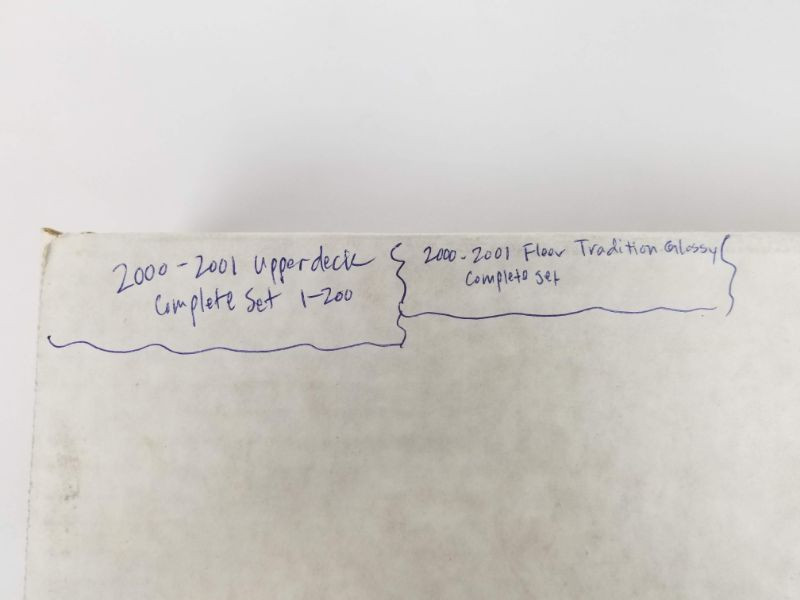 2000-2001 Upperdeck
Complete Set 1-200
2000-2001 Fleer Tradition Glossy
Complete Set